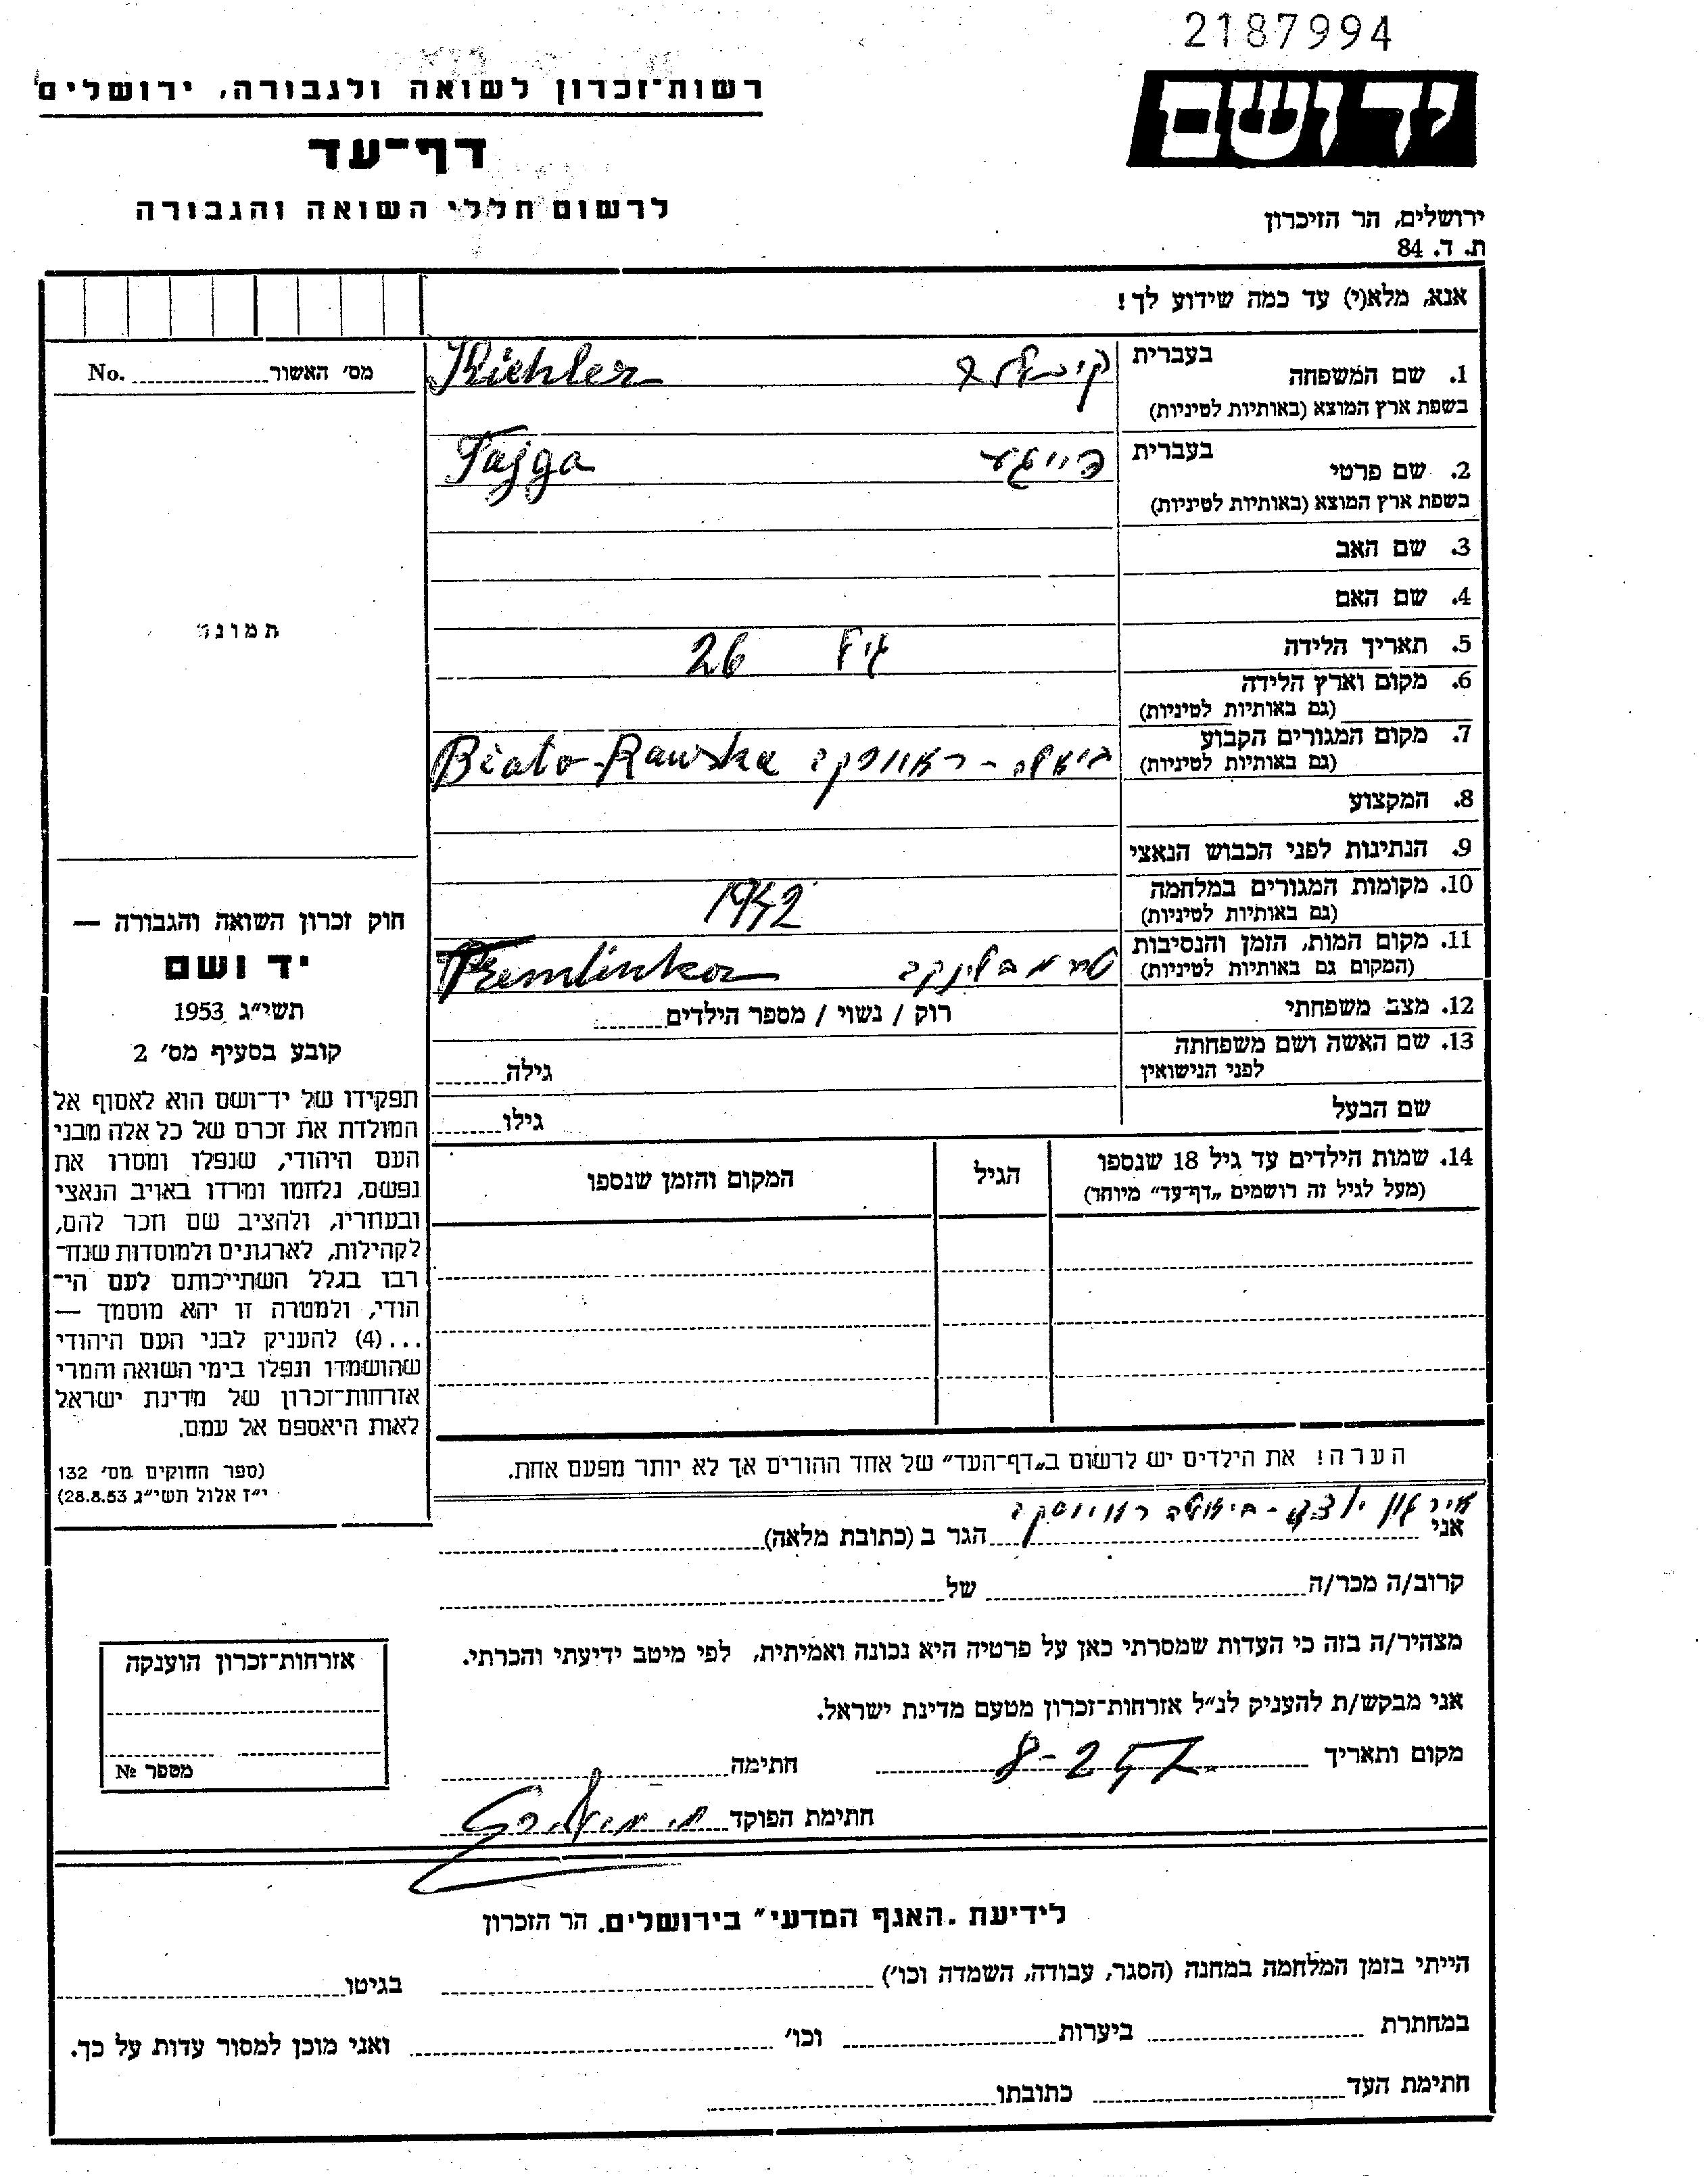 2187994
יד ושם
רשות־זכרון לשואה ולגבורה, ירושלים
דף־עד
לרשום חללי השואה והגבורה
ירושלים, הר הזיכרון
ת. ד. 84
אנא, מלא(י) עד כמה שידוע לך!
מס׳ האשור No.
1. שם המשפחה בעברית
בשפת ארץ המוצא (באותיות לטיניות)
Kichler
2. שם פרטי בעברית
בשפת ארץ המוצא (באותיות לטיניות)
פייגע Fajga
3. שם האב
4. שם האם
תמונה
5. תאריך הלידה גיל 26
6. מקום וארץ הלידה
(גם באותיות לטיניות)
7. מקום המגורים הקבוע
(גם באותיות לטיניות)
ביאלה - ראווסקה Biato-Rawska
8. המקצוע
9. הנתינות לפני הכבוש הנאצי
10. מקומות המגורים במלחמה
(גם באותיות לטיניות)
1942
11. מקום המות, הזמן והנסיבות
(המקום גם באותיות לטיניות)
טרמבלינקה Tremlinka
12. מצב משפחתי רוק / נשוי / מספר הילדים
13. שם האשה ושם משפחתה
לפני הנישואין גילה
שם הבעל גילו
14. שמות הילדים עד גיל 18 שנספו הגיל המקום והזמן שנספו
(מעל לגיל זה רושמים „דף־עד״ מיוחד)
הערה! את הילדים יש לרשום ב„דף־העד״ של אחד ההורים אך לא יותר מפעם אחת.
חוק זכרון השואה והגבורה —
יד ושם
תשי״ג 1953
קובע בסעיף מס׳ 2
תפקידו של יד־ושם הוא לאסוף אל
המולדת את זכרם של כל אלה מבני
העם היהודי, שנפלו ומסרו את
נפשם, נלחמו ומרדו באויב הנאצי
ובעוזריו, ולהציב שם וזכר להם,
לקהילות, לארגונים ולמוסדות שנח־
רבו בגלל השתייכותם לעם הי־
הודי, ולמטרה זו יהא מוסמך —
...(4) להעניק לבני העם היהודי
שהושמדו ונפלו בימי השואה והמרי
אזרחות־זכרון של מדינת ישראל
לאות היאספם אל עמם.
(ספר החוקים מס׳ 132
י״ז אלול תשי״ג 28.8.53)
אירגון יוצאי - ביאלה ראווסקה
אני הגר ב (כתובת מלאה)
קרוב/ה מכר/ה של
מצהיר/ה בזה כי העדות שמסרתי כאן על פרטיה היא נכונה ואמיתית, לפי מיטב ידיעתי והכרתי.
אני מבקש/ת להעניק לנ״ל אזרחות־זכרון מטעם מדינת ישראל.
מקום ותאריך חתימה
חתימת הפוקד
אזרחות־זכרון הוענקה
מספר №
לידיעת „האגף המדעי״ בירושלים. הר הזכרון
הייתי בזמן המלחמה במחנה (הסגר, עבודה, השמדה וכו׳) בגיטו
במחתרת ביערות וכו׳ ואני מוכן למסור עדות על כך.
חתימת העד כתובתו